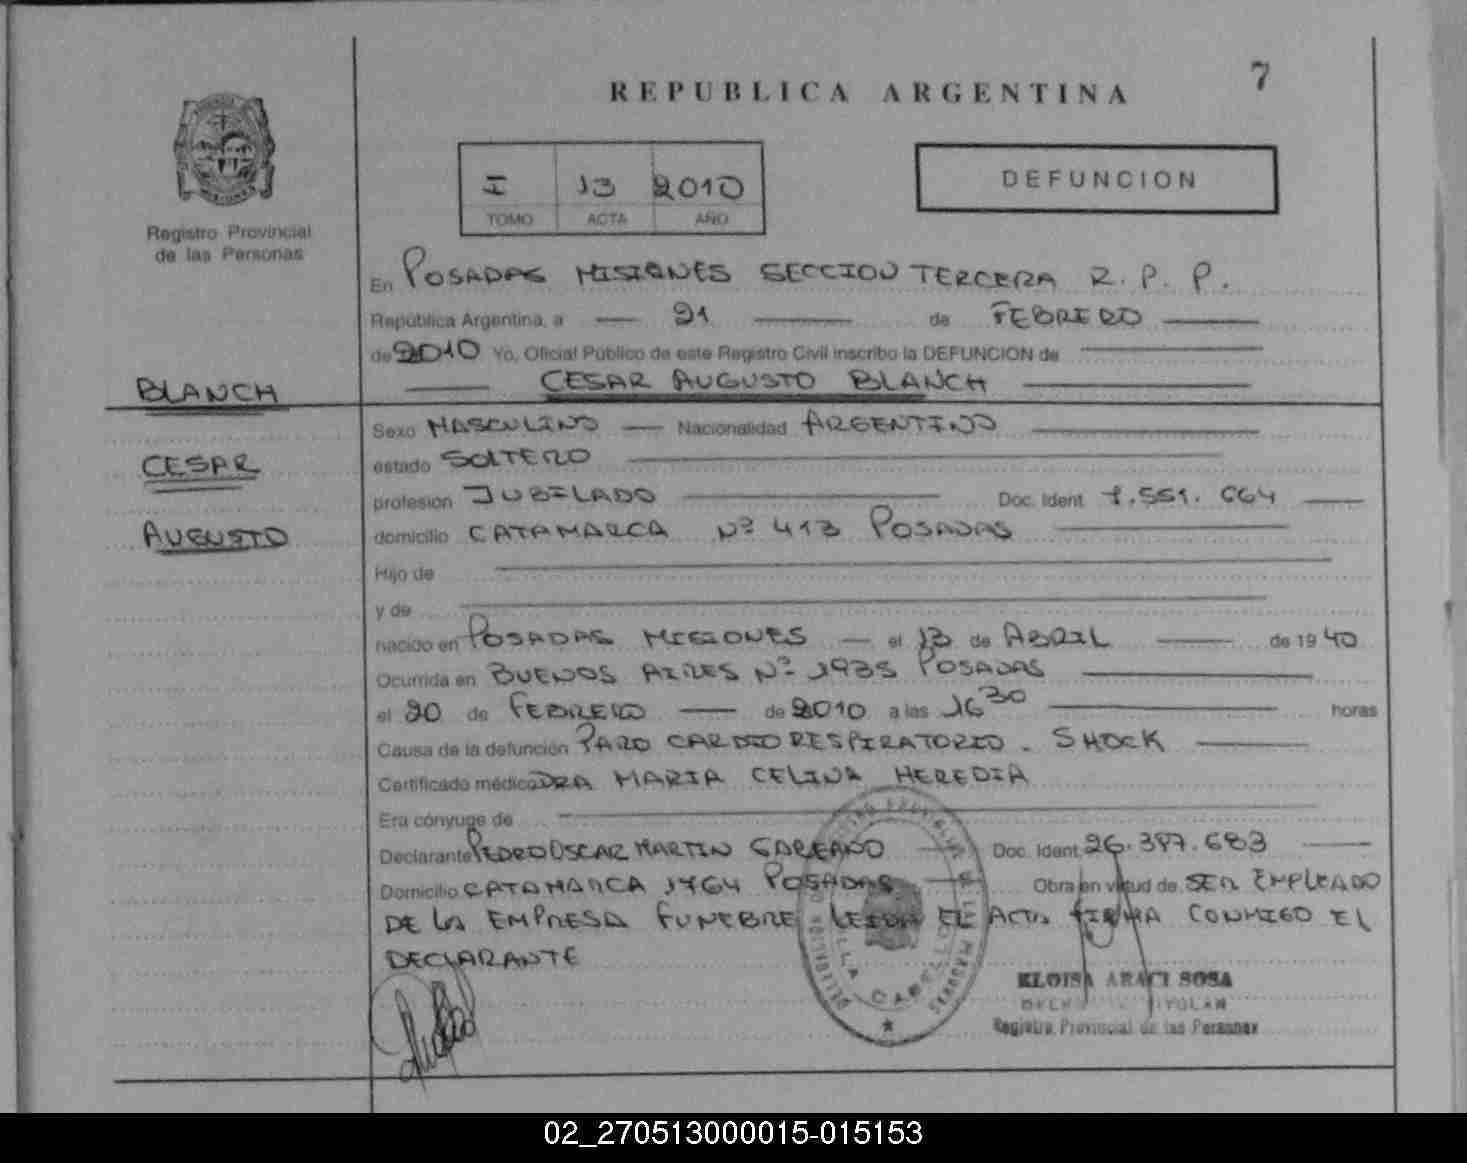 7
REPUBLICA ARGENTINA
I 13 2010
TOMO ACTA AÑO
DEFUNCION
Registro Provincial
de las Personas
En POSADAS MISIONES SECCION TERCERA R. P. P.
República Argentina, a 21 de FEBRERO
de 2010 Yo, Oficial Público de este Registro Civil inscribo la DEFUNCION de
CESAR AUGUSTO BLANCH
BLANCH
CESAR
AUGUSTO
Sexo MASCULINO Nacionalidad ARGENTINO
estado SOLTERO
profesión JUBILADO Doc. Ident. 7.551.664
domicilio CATAMARCA Nº 413 POSADAS
Hijo de
y de
nacido en POSADAS MISIONES el 13 de ABRIL de 1940
Ocurrida en BUENOS AIRES Nº 1935 POSADAS
el 20 de FEBRERO de 2010 a las 16 30 horas
Causa de la defunción PARO CARDIORESPIRATORIO - SHOCK
Certificado médico DRA MARIA CELINA HEREDIA
Era cónyuge de
Declarante PEDRO OSCAR MARTIN Doc. Ident. 26.387.683
Domicilio CATAMARCA 1764 POSADAS Obra en virtud de SER EMPLEADO
DE LA EMPRESA FUNEBRE LEIDA EL ACTA FIRMA CONMIGO EL
DECLARANTE
ELOISA ARACI SOSA
Registro Provincial de las Personas
02_270513000015-015153